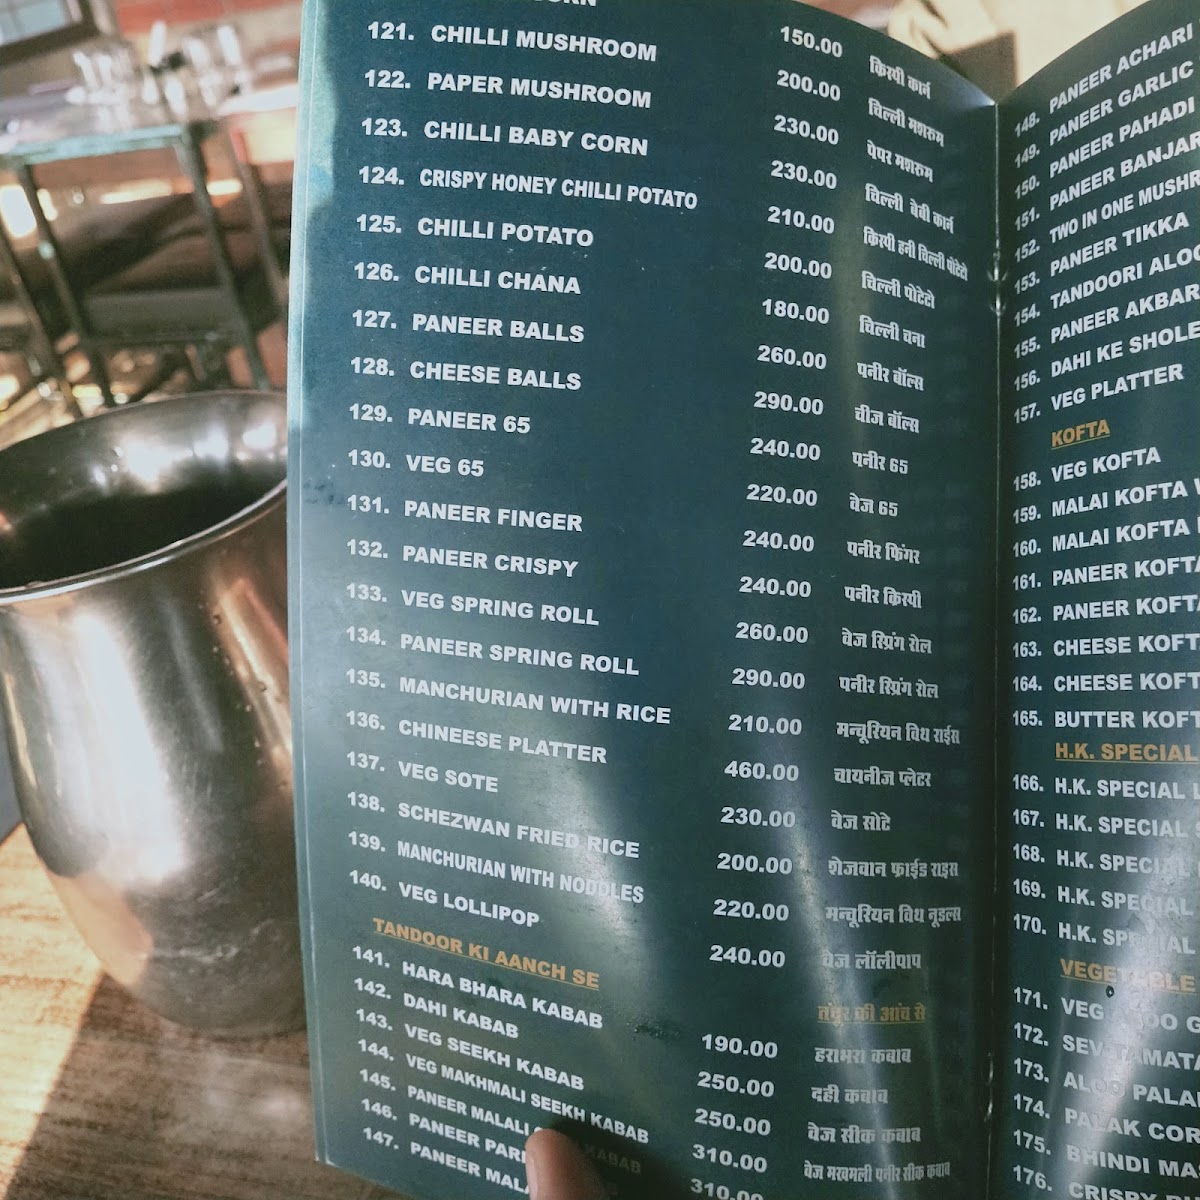 CORN 150.00 क्रिस्पी कार्न
121. CHILLI MUSHROOM 200.00 चिल्ली मशरुम
122. PAPER MUSHROOM 230.00 पेपर मशरुम
123. CHILLI BABY CORN 230.00 चिल्ली बेबी कार्न
124. CRISPY HONEY CHILLI POTATO 210.00 क्रिस्पी हनी चिल्ली पोटेटो
125. CHILLI POTATO 200.00 चिल्ली पोटेटो
126. CHILLI CHANA 180.00 चिल्ली चना
127. PANEER BALLS 260.00 पनीर बॉल्स
128. CHEESE BALLS 290.00 चीज बॉल्स
129. PANEER 65 240.00 पनीर 65
130. VEG 65 220.00 वेज 65
131. PANEER FINGER 240.00 पनीर फिंगर
132. PANEER CRISPY 240.00 पनीर क्रिस्पी
133. VEG SPRING ROLL 260.00 वेज स्प्रिंग रोल
134. PANEER SPRING ROLL 290.00 पनीर स्प्रिंग रोल
135. MANCHURIAN WITH RICE 210.00 मन्चूरियन विथ राईस
136. CHINEESE PLATTER 460.00 चायनीज प्लेटर
137. VEG SOTE 230.00 वेज सोटे
138. SCHEZWAN FRIED RICE 200.00 शेजवान फ्राईड राइस
139. MANCHURIAN WITH NODDLES 220.00 मन्चूरियन विथ नूडल्स
140. VEG LOLLIPOP 240.00 वेज लॉलीपाप
TANDOOR KI AANCH SE तंदूर की आंच से
141. HARA BHARA KABAB 190.00 हराभरा कबाब
142. DAHI KABAB 250.00 दही कबाब
143. VEG SEEKH KABAB 250.00 वेज सीक कबाब
144. VEG MAKHMALI SEEKH KABAB 310.00 वेज मखमली पनीर सीक कबाब
145. PANEER MALAI KABAB 310.00
146. PANEER
147. PANEER
148. PANEER ACHARI
149. PANEER GARLIC
150. PANEER PAHADI
151. PANEER BANJAR
152. TWO IN ONE MUSHR
153. PANEER TIKKA
154. TANDOORI ALOO
155. PANEER AKBAR
156. DAHI KE SHOLE
157. VEG PLATTER
KOFTA
158. VEG KOFTA
159. MALAI KOFTA W
160. MALAI KOFTA
161. PANEER KOFTA
162. PANEER KOFTA
163. CHEESE KOFT
164. CHEESE KOFT
165. BUTTER KOFT
H.K. SPECIAL
166. H.K. SPECIAL
167. H.K. SPECIAL
168. H.K. SPECIAL
169. H.K. SPECIAL
170. H.K. SPECIAL
VEGETABLE
171. VEG ALOO G
172. SEV TAMATA
173. ALOO PALA
174. PALAK COR
175. BHINDI MA
176. CRISPY